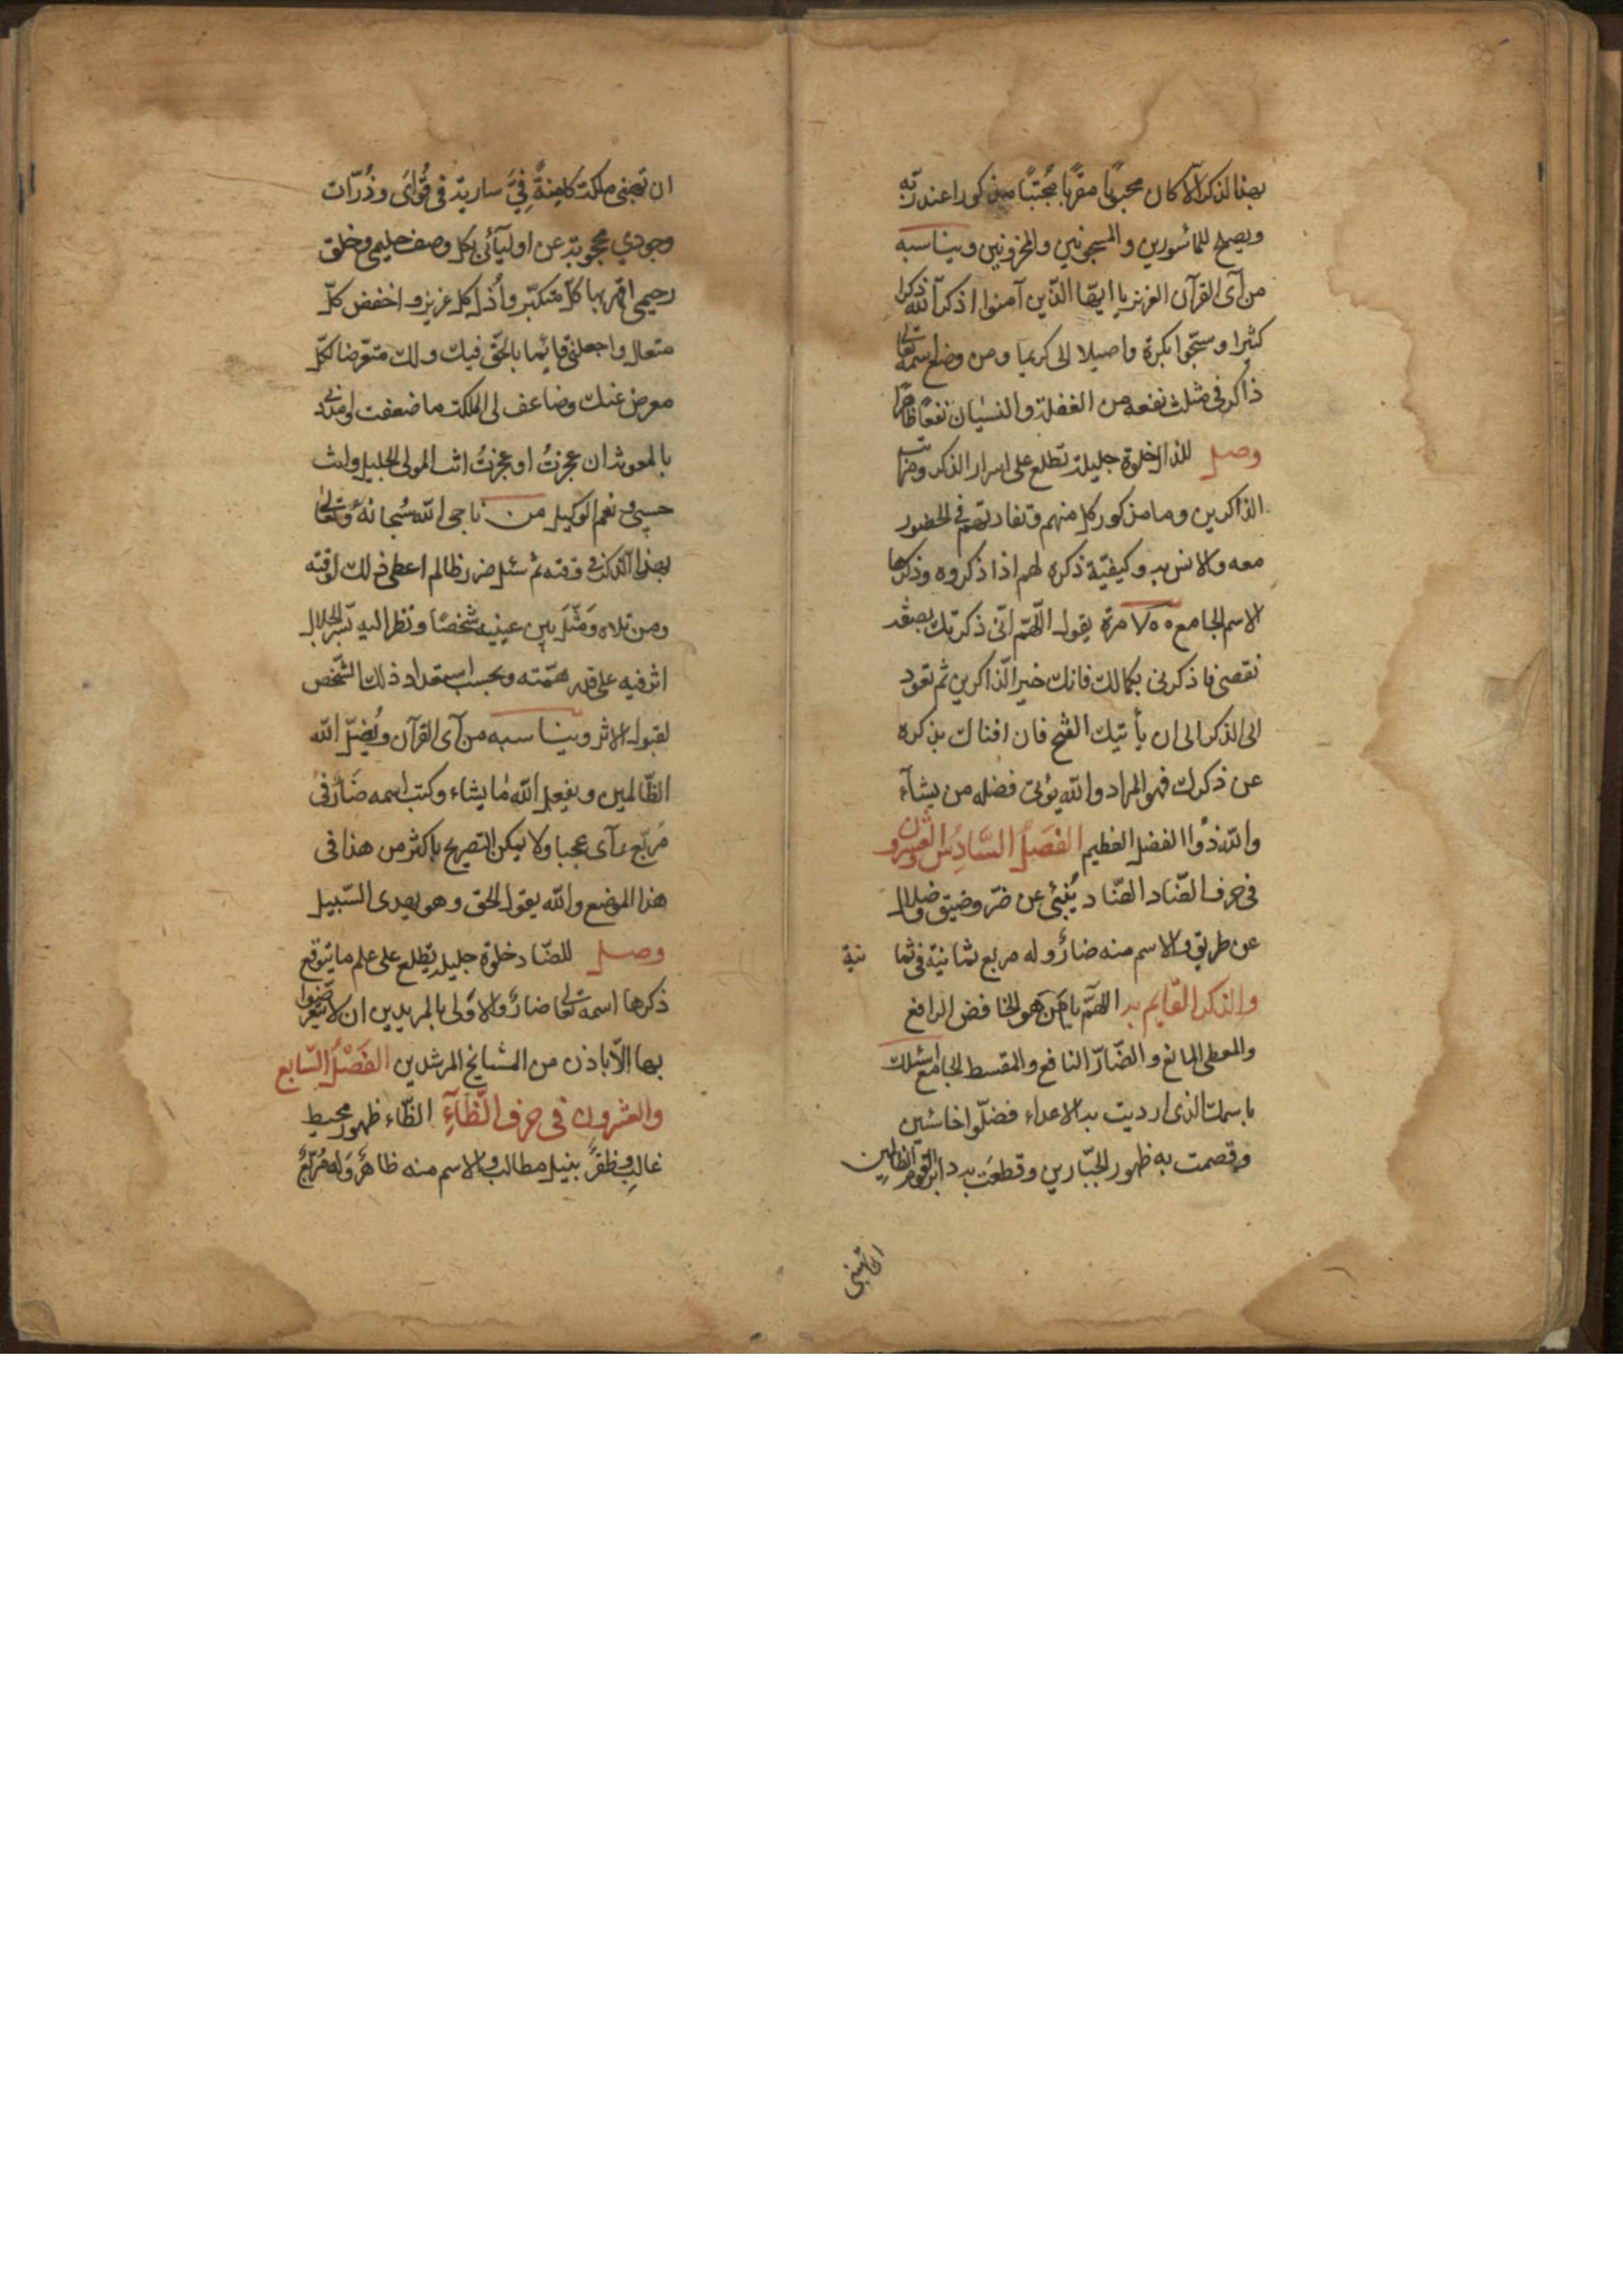 بهذا الذكر الا كان محبوبا مقربا مجتبا مذكورا عند ربه
ويصلح للمأسورين والمسجونين والمحزونين ويناسبه
من آى القرآن العزيز يا ايها الذين آمنوا اذكروا الله ذكرا
كثيرا وسبحوا بكرة واصيلا الى كريما ومن وضع اسمه تعالى
ذاكر فى مثلث نفعه من الغفلة والنسيان نفعا ظاهرا
وصل للذال خلوة جليلة تطلع على اسرار الذكر ومراتب
الذاكرين وما مذكور كل منهم وتفاوتهم فى الحضور
معه والانس به وكيفية ذكره لهم اذا ذكروه وذكرها
الاسم الجامع مرة يقول اللهم انى ذكرتك بصفة
نقصى فاذكرنى بكمالك فانك خير الذاكرين ثم تعود
الى الذكر الى ان يأتيك الفتح فان افناك بذكره
عن ذكرك فهو المراد والله يؤتى فضله من يشآء
والله ذوا الفضل العظيم الفصل السادس والعشرون
فى حرف الضاد الضاد ينبئ عن ضر وضيق وضلال
عن طريق والاسم منه ضار وله مربع ثمانية فى ثما نية
والذكر القايم به اللهم يا من هو الخافض الرافع
والمعطى المانع والضار النافع والمقسط الجامع اسئلك
باسمك الذى ارديت به الاعداء فضلوا خائبين
وقصمت به ظهور الجبارين وقطعت به دابر القوم الظالمين
ان تهبنى
ان تهبنى ملكة كامنة فى سارية فى قواى وذرات
وجودى محجوبة عن اوليآئى بكل وصف حليمى وخلق
رحيمى اقهر بها كل متكبر واذل كل عزيز واخفض كل
متعال واجعلنى قائما بالحق فيك ولك متعرضا لكل
معرض عنك وضاعف لى الملكة ما ضعفت او مدنى
بالمعونة ان عجزت او عجزت انت المولى الجليل وانت
حسبى ونعم الوكيل من ناجى الله سبحانه وتعالى
بهذا الذكر فى وقته ثم سئل ضر ظالم اعطى ذلك لوقته
ومن تلاه ومثل بين عينيه شخصا ونظر اليه بسر الجلال
اثر فيه على قدر همته وبحسب استعداد ذلك الشخص
لقبول الاثر ويناسبه من آى القرآن ويضل الله
الظالمين ويفعل الله ما يشاء وكتب اسمه ضار فى
مربع رآى عجبا ولا يمكن التصريح باكثر من هذا فى
هذا الموضع والله يقول الحق وهو يهدى السبيل
وصل للضاد خلوة جليلة يطلع على علم ما يتوقع
ذكرها اسمه تعالى ضار والاولى بالمريدين ان لا يتعرضوا
بها الا باذن من المشايخ المرشدين الفصل السابع
والعشرون فى حرف الظآء الظاء ظهور محيط
غالب وظفر بنيل مطالب والاسم منه ظاهر وله مربع